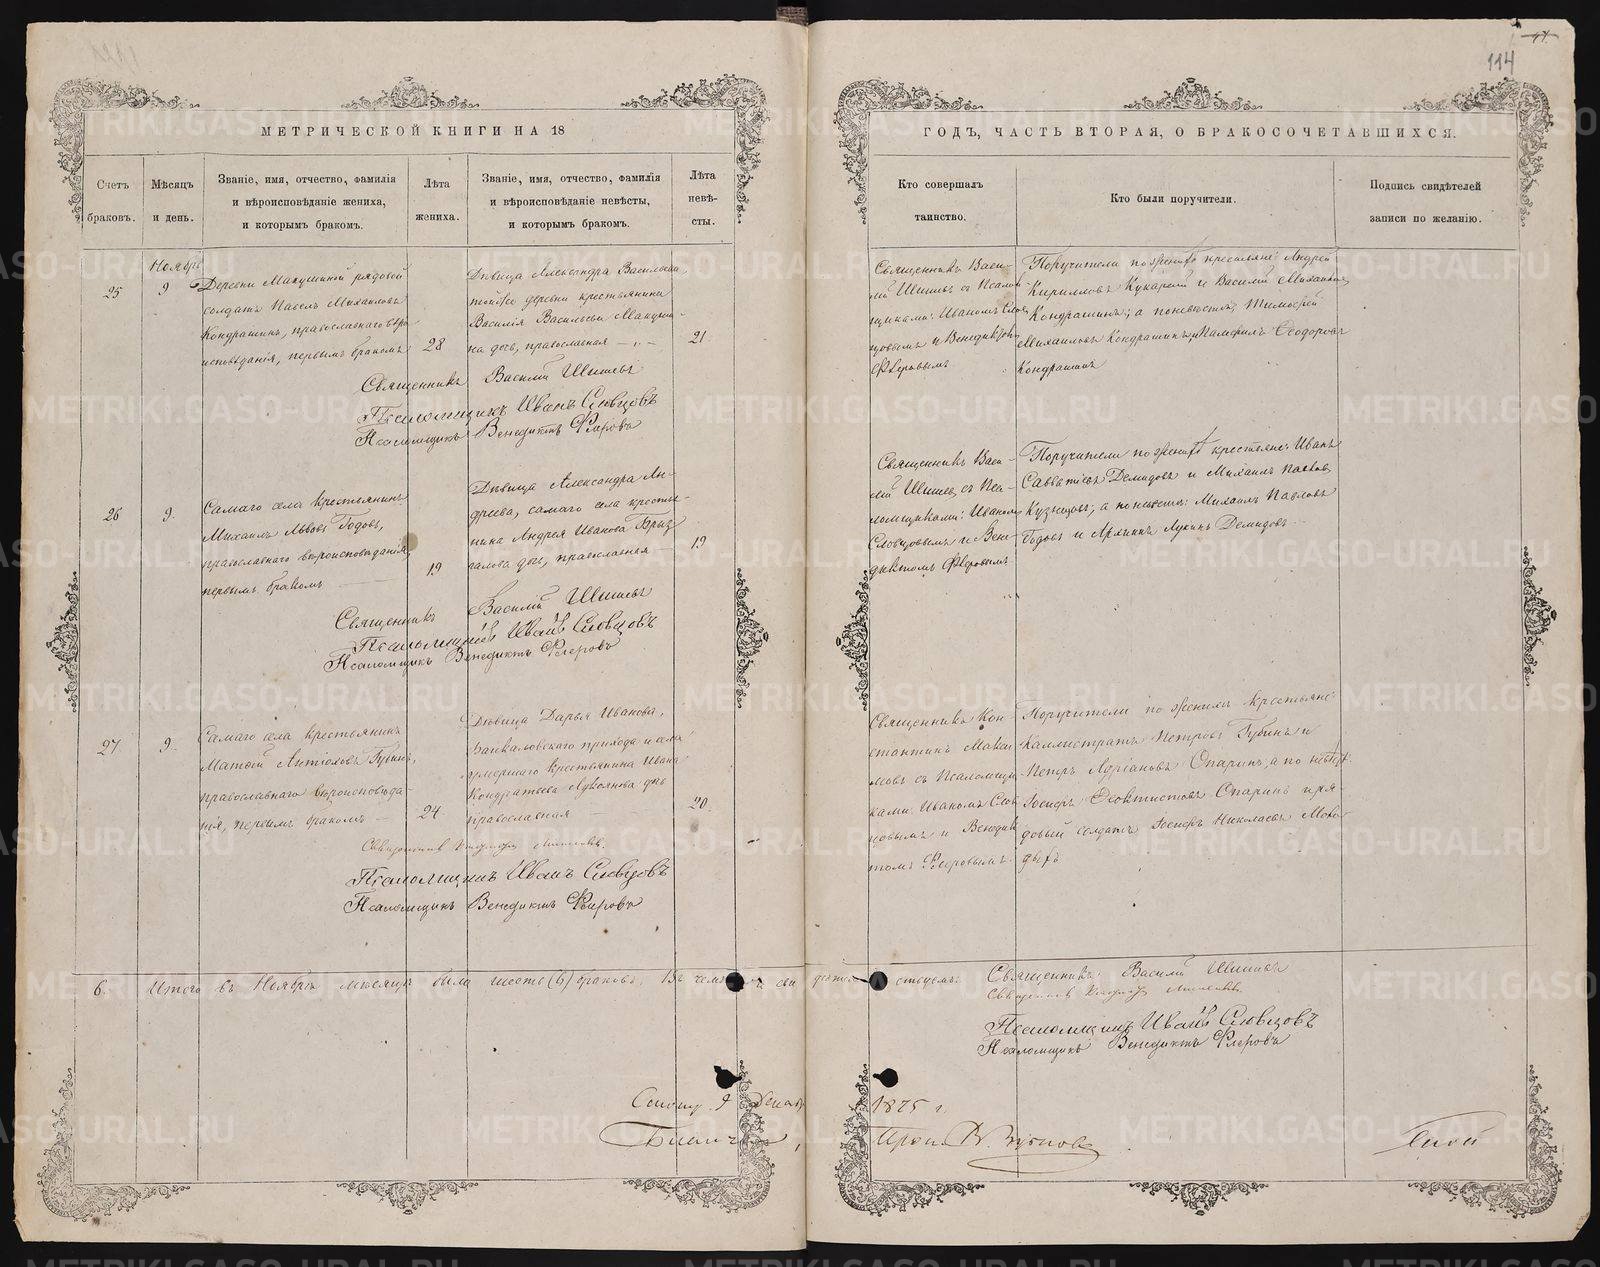 114
МЕТРИЧЕСКОЙ КНИГИ НА 18
ГОДЪ, ЧАСТЬ ВТОРАЯ, О БРАКОСОЧЕТАВШИХСЯ.
Счетъ браковъ.
Мѣсяцъ и день.
Званіе, имя, отчество, фамилія
и вѣроисповѣданіе жениха,
и которымъ бракомъ.
Лѣта жениха.
Званіе, имя, отчество, фамилія
и вѣроисповѣданіе невѣсты,
и которымъ бракомъ.
Лѣта невѣ-
сты.
Кто совершалъ
таинство.
Кто были поручители.
Подпись свидѣтелей
записи по желанію.
Ноябрь
25
9
Деревни Макушиной рядовой
солдатъ Павелъ Михаиловъ
Кондрашинъ, православнаго вѣро
исповѣданія, первымъ бракомъ
28
Дѣвица Александра Васильева
той же деревни крестьянина
Василія Васильева Макуши-
на дочь, православная
21
Священникъ Васи-
лій Шишевъ съ Псалом
щиками: Иваномъ Слов
цовымъ и Венедиктом
Флеровымъ
Поручители по женихѣ крестьяне: Андрей
Кирилловъ Кукарский и Василій Михаиловъ
Кондрашинъ; а по невѣстѣ, Тимофей
Михаиловъ Кондрашинъ и Памфилъ Ѳеодоровъ
Кондрашинъ
Священникъ Василій Шишевъ
Псаломщикъ Иванъ Словцовъ
Псаломщикъ Венедиктъ Флеровъ
26
9.
Самаго села крестьянинъ
Михаилъ Львовъ Годовъ,
православнаго вѣроисповѣданія,
первымъ бракомъ
19
Дѣвица Александра Ан-
дреева, самаго села кресть-
янина Андрея Иванова Бриз
галова дочь, православная
19
Священникъ Васи-
лій Шишевъ съ Пса-
ломщиками: Иваномъ
Словцовымъ и Вене-
диктомъ Флеровымъ
Поручители по женихѣ крестьяне: Иванъ
Савватіевъ Демидовъ и Михаилъ Павловъ
Кузнецовъ; а по невѣстѣ: Михаилъ Павловъ
Годовъ и Архипъ Лукинъ Демидовъ
Священникъ Василій Шишевъ
Псаломщикъ Иванъ Словцовъ
Псаломщикъ Венедиктъ Флеровъ
27
9.
Самаго села крестьянинъ
Матѳей Антіоховъ Губинъ,
православнаго вѣроисповѣда-
нія, первымъ бракомъ
24
Дѣвица Дарья Иванова,
Байкаловскаго прихода и села
умершаго крестьянина Ивана
Кондратьева Лукоянова дочь
православная
20.
Священникъ Кон-
стантинъ Макси
мовъ съ Псаломщи
ками: Иваномъ Слов
цовымъ и Венедик
томъ Флеровымъ.
Поручители по женихѣ крестьяне:
Каллистратъ Петровъ Губинъ и
Петръ Адріановъ Опаринъ, а по невѣстѣ
Іосифъ Ѳеоктистовъ Опаринъ и ря-
довый солдатъ Іосифъ Николаевъ Мокро
Псаломщикъ Иванъ Словцовъ
Псаломщикъ Венедиктъ Флеровъ
6. Итого въ Ноябрѣ мѣсяцѣ было шесть (6) браковъ. Въ чемъ и сви дѣтель ствуемъ:
Священникъ Василій Шишевъ
Псаломщикъ Иванъ Словцовъ
Псаломщикъ Венедиктъ Флеровъ
1875 г.
METRIKI.GASO-URAL.RU